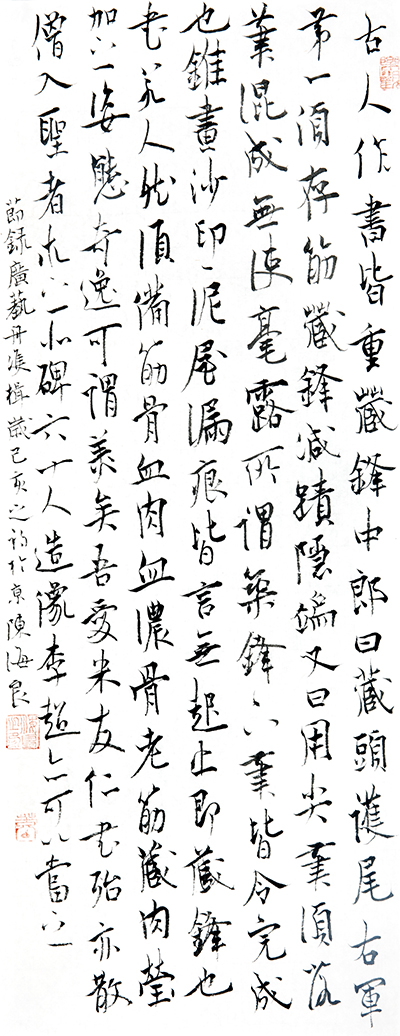 古人作書皆重藏鋒中郎曰藏頭護尾右軍
第一須存筋藏鋒滅蹟隱端又曰用尖筆須落
筆混成無使毫露所謂築鋒下筆皆令完成
也錐畫沙印〻泥屋漏痕皆言無起止即藏鋒也
書若人然須備筋骨血肉血濃骨老筋藏肉瑩
加以姿態奇逸可謂美矣吾愛米友仁書殆亦散
僧入聖者求之北碑六十人造像李超亦可以當之
節録廣藝舟雙楫歲己亥之初於京陳海良